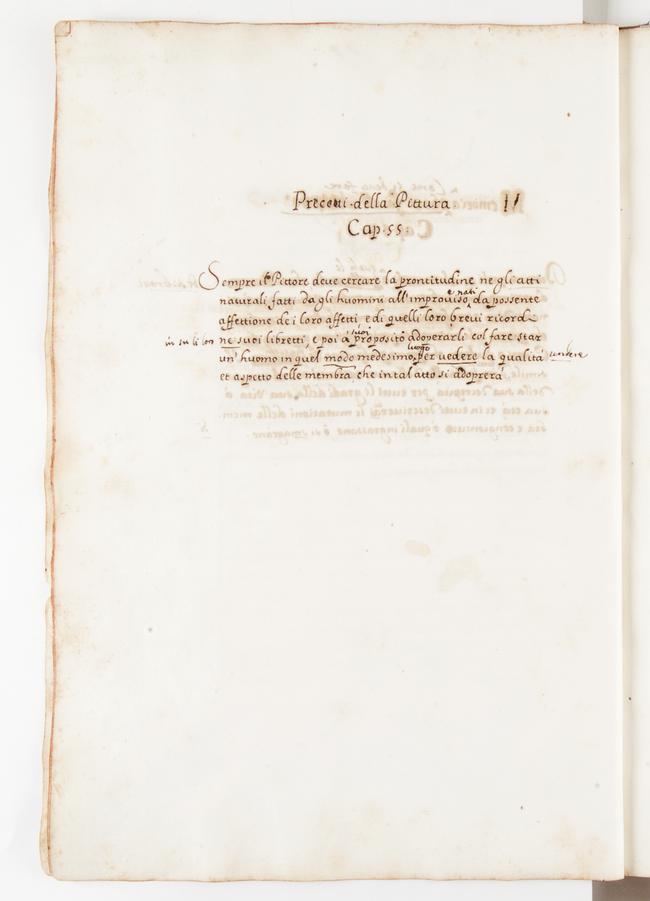 Precetti della Pittura
Cap. 55:
Sempre il Pittore deve cercare la prontitudine ne gli atti
e nati
naturali fatti da gli huomini all'improviso, da possente
affettione de i loro affetti, e di quelli loro brevi ricordi
suoi
ne suoi libretti, e poi à propositò adoperarli col fare star
luogo
un' huomo in quel modo medesimo, per vedere la qualità
et aspetto delle membra, che in tal atto si adoprerà